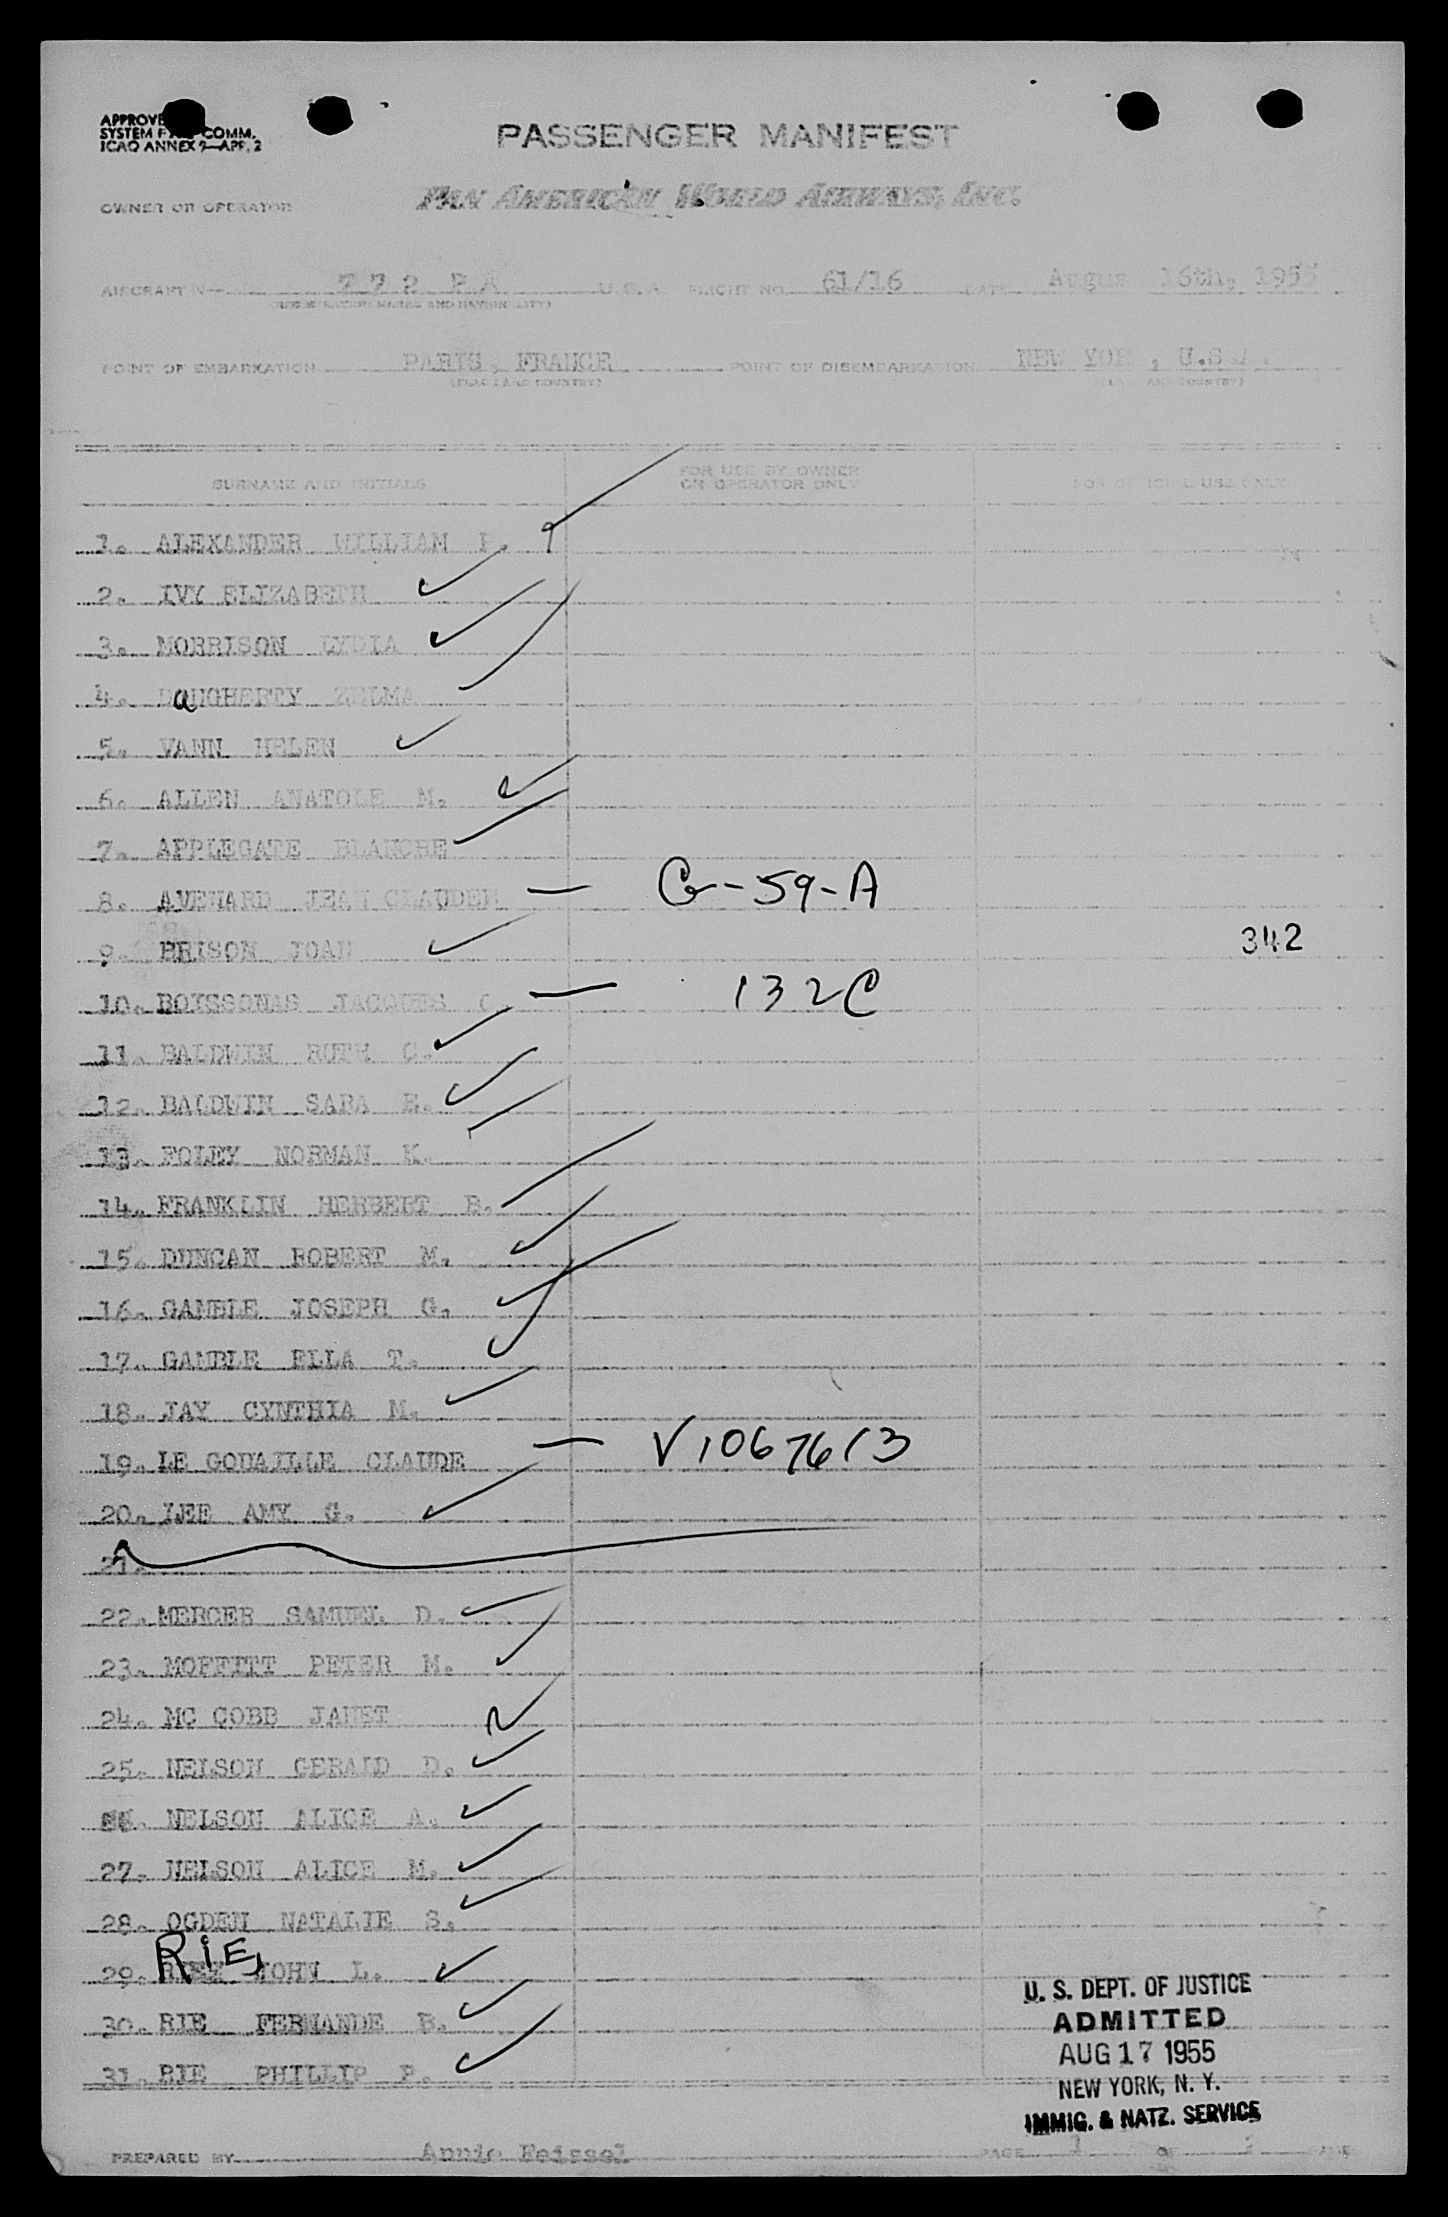 APPROVE
SYSTEM F COMM.
ICAO ANNEX 9—APP. 2
PASSENGER MANIFEST
OWNER OR OPERATOR PAN AMERICAN WORLD AIRWAYS, INC.
AIRCRAFT N— U.S.A. FLIGHT NO. 61/16 DATE Augus 16th, 1955
POINT OF EMBARKATION PARIS, FRANCE POINT OF DISEMBARKATION NEW YOR , U.S.A.
(PLACE AND COUNTRY)
SURNAME AND INITIALS
FOR USE BY OWNER
OR OPERATOR ONLY
FOR OFFICIAL USE ONLY
1. ALEXANDER WILLIAM
2. IVY ELIZABETH
3. MORRISON LYDIA
4. DAUGHERTY ZELMA
5. VANN HELEN
6. ALLEN ANATOLE M.
7. APPLEGATE BLANCHE
8. AVENARD JEAN CLAUDE — G-59-A
9. BRISON JOAN 342
10. BOISSONAS JACQUES C. — 132C
11. BALDWIN RUTH C.
12. BALDWIN SARA E.
13. FOLEY NORMAN K.
14. FRANKLIN HERBERT B.
15. DUNCAN ROBERT M.
16. GAMBLE JOSEPH G.
17. GAMBLE ELLA T.
18. JAY CYNTHIA M.
19. LE GOUAILLE CLAUDE — V1067613
20. LEE AMY G.
21.
22. MERCER SAMUEL D.
23. MOFFITT PETER M.
24. MC COBB JANET
25. NELSON GERALD D.
NELSON ALICE A.
27. NELSON ALICE M.
28. OGDEN NATALIE S.
29. RIE, JOHN L.
30. RIE FERNANDE B.
31. RIE PHILLIP P.
U. S. DEPT. OF JUSTICE
ADMITTED
AUG 17 1955
NEW YORK, N. Y.
IMMIG. & NATZ. SERVICE
PREPARED BY Annie Feissel PAGE 1 OF